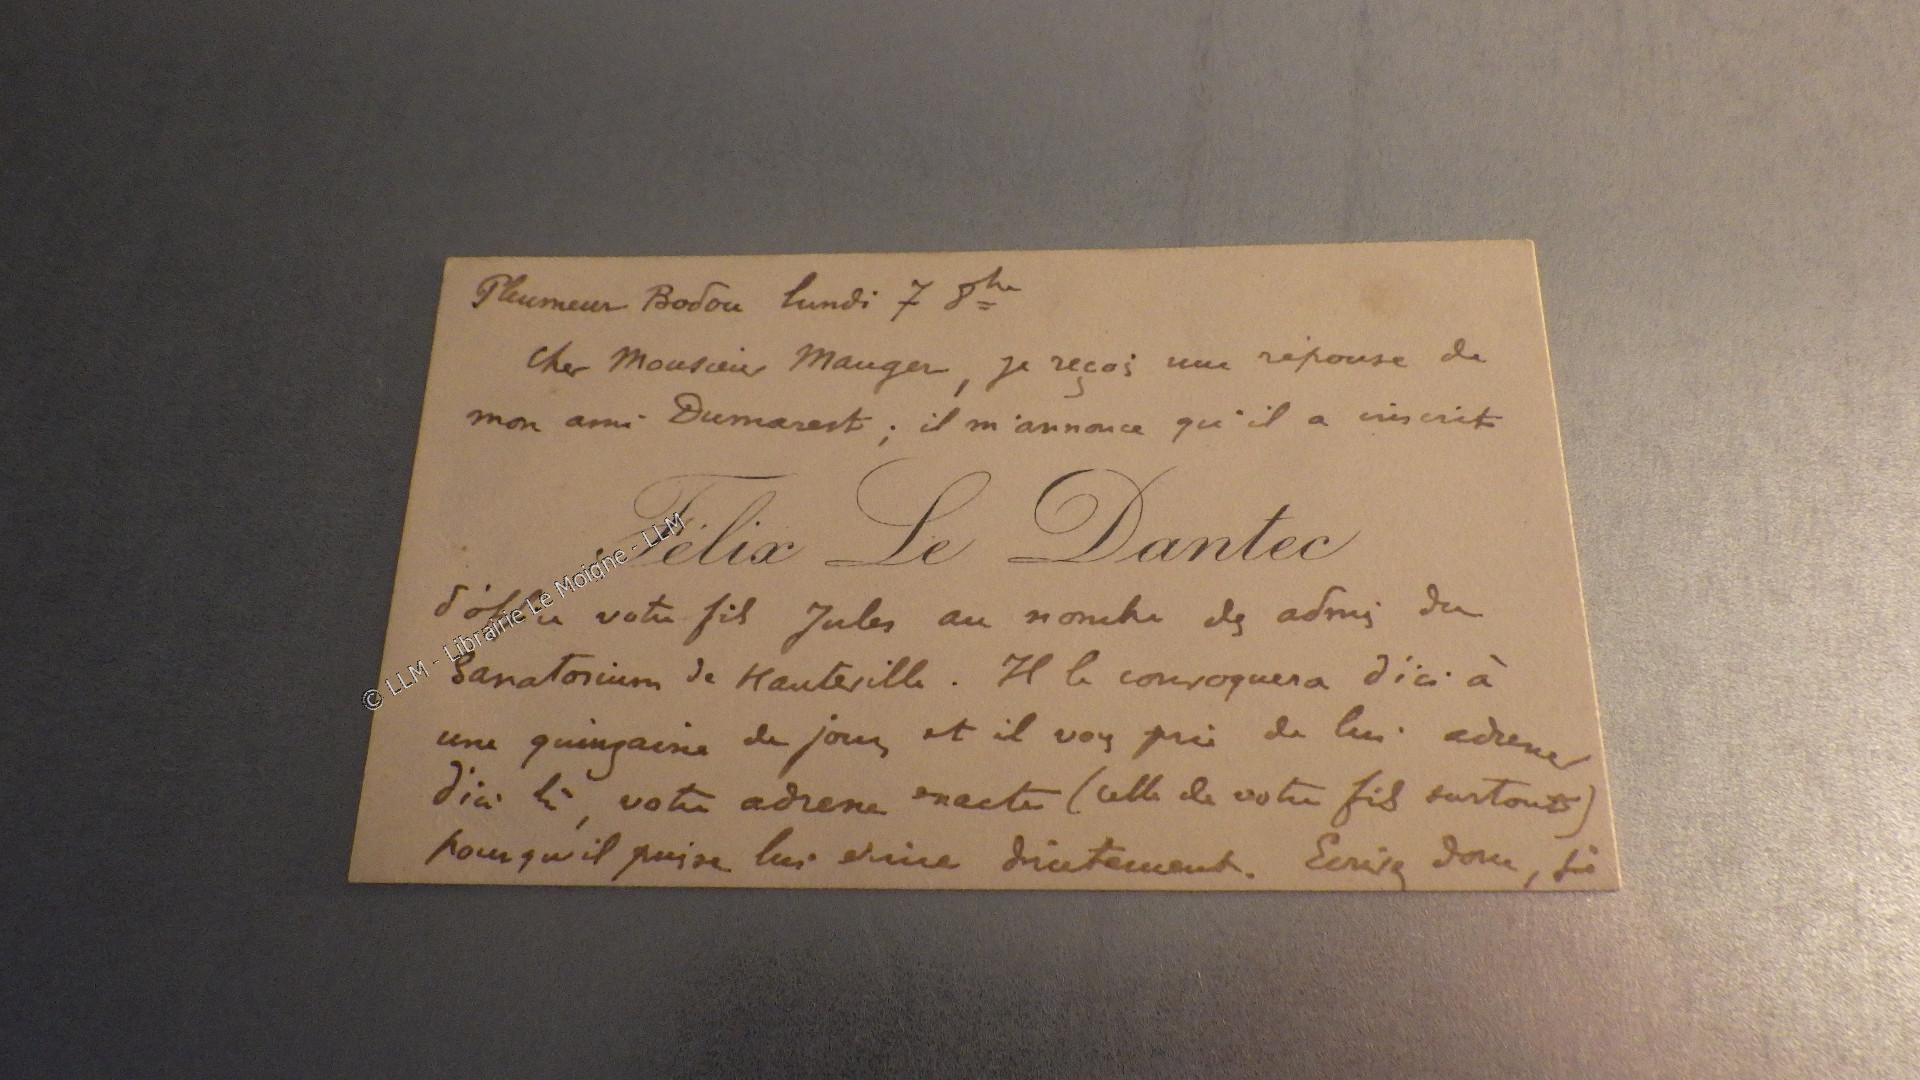 Pleumeur Bodou lundi 7 8bre
Cher Monsieur Mauger, je reçois une réponse de
mon ami Dumarest ; il m'annonce qu'il a inscrit
Félix Le Dantec
d'office votre fils Jules au nombre des admis du
Sanatorium de Hauteville. Il le convoquera d'ici à
une quinzaine de jours et il vous prie de lui adresser
d'ici là, votre adresse exacte (celle de votre fils surtout)
pour qu'il puisse lui écrire directement. Ecrivez donc,
© LLM - Librairie Le Moigne - LLM